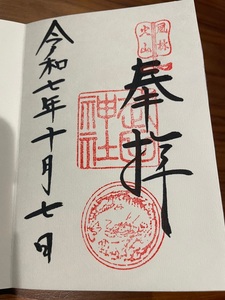 風林
火山
奉拝
武田
神社
令和七年十月七日